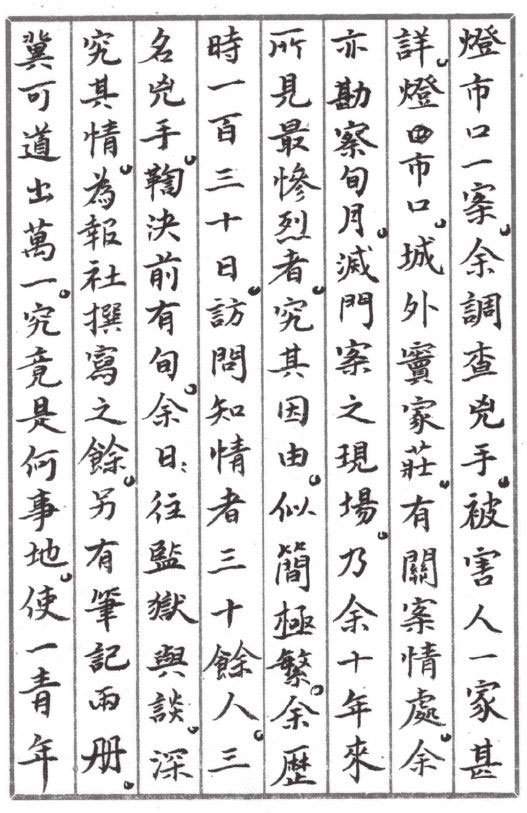 燈市口一案。余調查兇手。被害人一家甚
詳。燈市口。城外竇家莊。有關案情處。余
亦勘察旬月。滅門案之現場。乃余十年來
所見最慘烈者。究其因由。似簡極繁。余歷
時一百三十日。訪問知情者三十餘人。三
名兇手。鞫決前有旬。余日日往監獄與談。深
究其情。為報社撰寫之餘。另有筆記兩册。
冀可道出萬一。究竟是何事地。使一青年